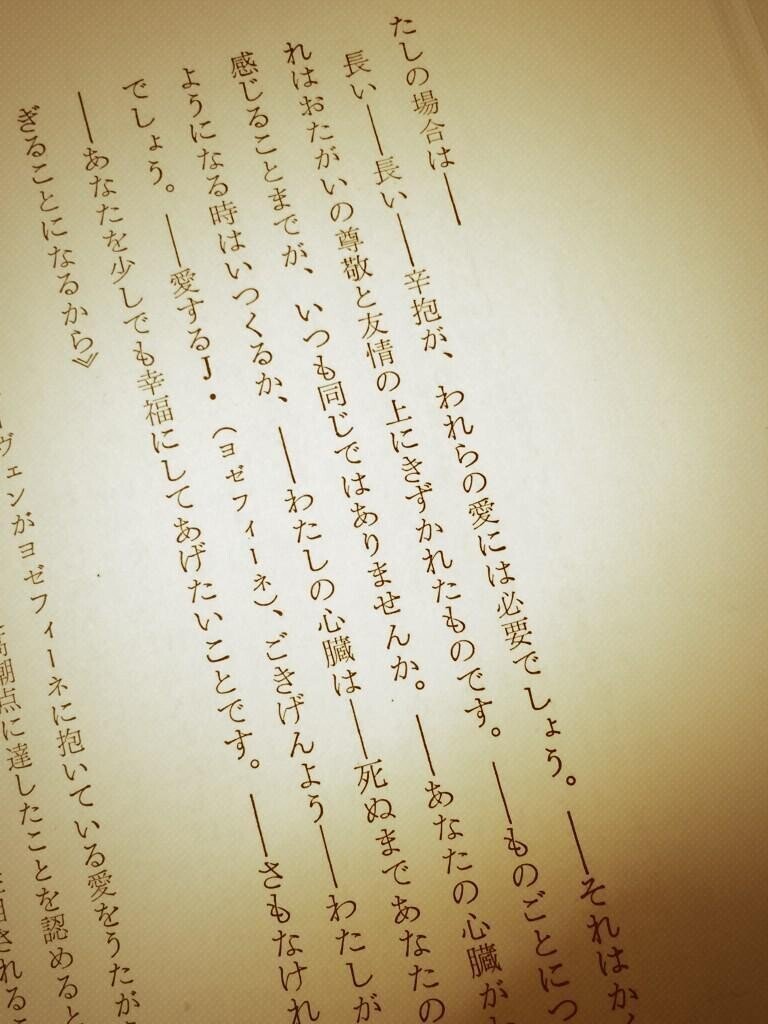 たしの場合は――
長い――長い――辛抱が、われらの愛には必要でしょう。――それはか
れはおたがいの尊敬と友情の上にきずかれたものです。――ものごとにつ
感じることまでが、いつも同じではありませんか。――あなたの心臓が
ようになる時はいつくるか、――わたしの心臓は――死ぬまであなたの
でしょう。――愛するJ・（ヨゼフィーネ）、ごきげんよう――わたしが
――あなたを少しでも幸福にしてあげたいことです。――さもなけれ
ぎることになるから》
ヴェンがヨゼフィーネに抱いている愛をうたが
潮点に達したことを認めると
されるこ